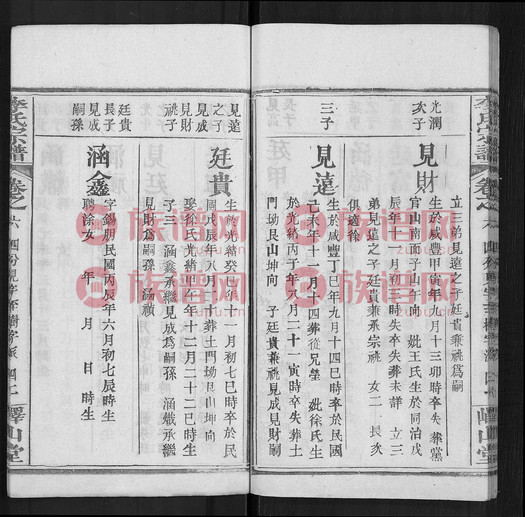 光潤
次子
見財
立三弟見遠之子廷貴兼祧爲嗣
生於咸豐甲寅年九月十三卯時失卒葬黨
官山南面子山午向 妣王氏生於同治戊
辰年十一月初七時失卒失葬未詳 立三
弟見遠之子廷貴兼承宗祧 女二 長次
俱適徐
三子
見遠
生於咸豐丁巳年九月十四巳時卒於民國
己未年十一月十四葬從兄塋 妣徐氏生
於光緒丙子年八月二十一寅時卒失葬土
門坳艮山坤向 子廷貴兼祧見成見財嗣
見遠
之子
見成
祧子
廷貴
生於光緒癸巳年十一月初七巳時卒於民
國戊辰年八月十葬土門坳艮山坤向
娶徐氏生於光緒己卯年十二月二十二巳時生
子三 涵鑫承繼見成爲嗣孫 涵熾承繼
見財爲嗣孫 涵禎
廷貴
長子
見成
嗣孫
涵鑫
字錫朋民國丙辰年六月初七辰時生
聘徐女 年 月 日 時生
李氏宗譜
卷之
六
嶧山堂
族谱网